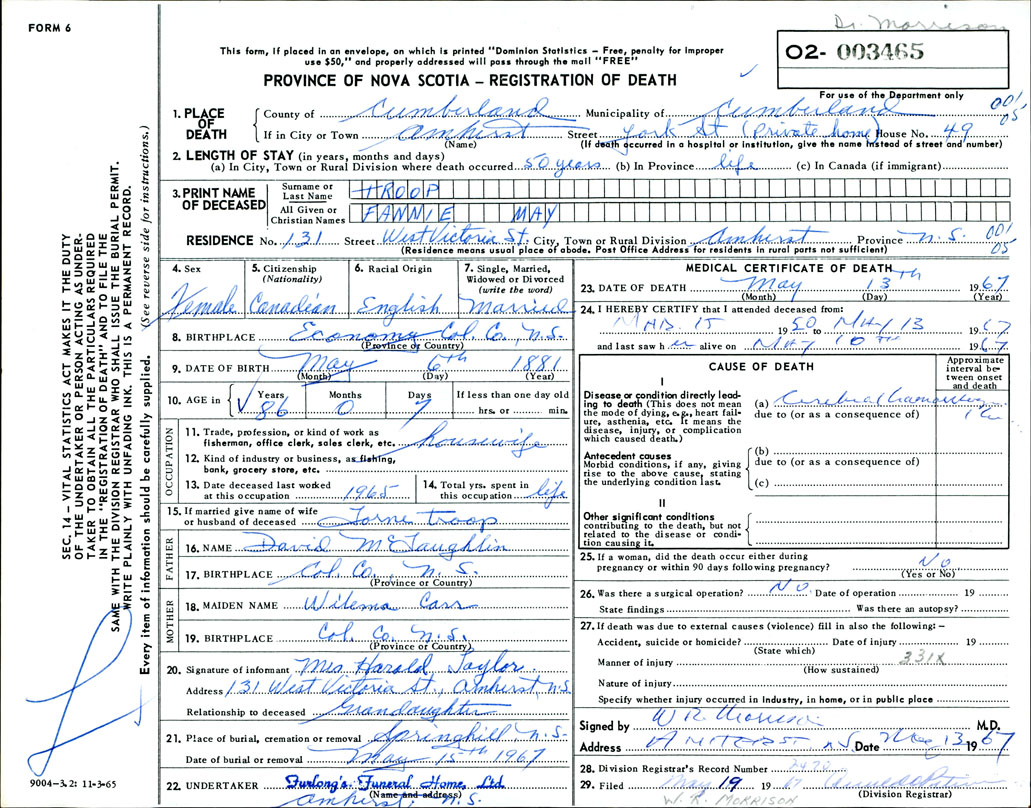 FORM 6
Dr. Morrison
This form, if placed in an envelope, on which is printed "Dominion Statistics – Free, penalty for improper
use $50," and properly addressed will pass through the mail "FREE"
O2- 003465
PROVINCE OF NOVA SCOTIA – REGISTRATION OF DEATH
For use of the Department only
001
05
1. PLACE OF DEATH
County of Cumberland Municipality of Cumberland
If in City or Town Amherst Street York St (Private home) House No. 49
(Name) (If death occurred in a hospital or institution, give the name instead of street and number)
2. LENGTH OF STAY (in years, months and days)
(a) In City, Town or Rural Division where death occurred 50 years (b) In Province life (c) In Canada (if immigrant)
3. PRINT NAME OF DECEASED
Surname or Last Name TROOP
All Given or Christian Names FANNIE MAY
RESIDENCE No. 131 Street West Victoria St. City, Town or Rural Division Amherst Province N.S. 001
05
(Residence means usual place of abode. Post Office Address for residents in rural parts not sufficient)
4. Sex Female
5. Citizenship (Nationality) Canadian
6. Racial Origin English
7. Single, Married, Widowed or Divorced (write the word) Married
8. BIRTHPLACE Economy Col. Co., N.S.
(Province or Country)
9. DATE OF BIRTH May 6th 1881
(Month) (Day) (Year)
10. AGE in Years 86 Months 0 Days 7 If less than one day old
hrs. or min.
OCCUPATION
11. Trade, profession, or kind of work as
fisherman, office clerk, sales clerk, etc. housewife
12. Kind of industry or business, as fishing,
bank, grocery store, etc.
13. Date deceased last worked
at this occupation 1965
14. Total yrs. spent in
this occupation life
15. If married give name of wife
or husband of deceased Troop
FATHER
16. NAME David McLaughlin
17. BIRTHPLACE Col. Co., N.S.
(Province or Country)
MOTHER
18. MAIDEN NAME Carr
19. BIRTHPLACE Col. Co. N.S.
(Province or Country)
20. Signature of informant Mrs Harold Taylor
Address 131 West Victoria St., Amherst, N.S.
Relationship to deceased Grandaughter
21. Place of burial, cremation or removal Springhill N.S.
Date of burial or removal May 15th 1967
22. UNDERTAKER Furlong's Funeral Home, Ltd.
(Name and address)
Amherst, N.S.
9004-3.2: 11-3-65
SEC. 14 – VITAL STATISTICS ACT MAKES IT THE DUTY
OF THE UNDERTAKER OR PERSON ACTING AS UNDER-
TAKER TO OBTAIN ALL THE PARTICULARS REQUIRED
IN THE "REGISTRATION OF DEATH" AND TO FILE THE
SAME WITH THE DIVISION REGISTRAR WHO SHALL ISSUE THE BURIAL PERMIT.
WRITE PLAINLY WITH UNFADING INK. THIS IS A PERMANENT RECORD.
Every item of information should be carefully supplied. (See reverse side for instructions.)
MEDICAL CERTIFICATE OF DEATH
23. DATE OF DEATH May 13th 1967
(Month) (Day) (Year)
24. I HEREBY CERTIFY that I attended deceased from:
15 1950 to MAY 13 1967
and last saw her alive on MAY 10TH 1967
CAUSE OF DEATH
Approximate interval between onset and death
I
Disease or condition directly leading to death (This does not mean the mode of dying, e.g., heart failure, asthenia, etc. It means the disease, injury, or complication which caused death.)
(a) Cerebral
due to (or as a consequence of)
Antecedent causes
Morbid conditions, if any, giving rise to the above cause, stating the underlying condition last.
(b)
due to (or as a consequence of)
(c)
II
Other significant conditions
contributing to the death, but not related to the disease or condition causing it.
25. If a woman, did the death occur either during
pregnancy or within 90 days following pregnancy? No
(Yes or No)
26. Was there a surgical operation? No. Date of operation 19
State findings Was there an autopsy?
27. If death was due to external causes (violence) fill in also the following: –
Accident, suicide or homicide? Date of injury 19
(State which)
Manner of injury 331X
(How sustained)
Nature of injury
Specify whether injury occurred in industry, in home, or in public place
Signed by W R Morrison M.D.
Address AMHERST N.S. Date May 13 1967
28. Division Registrar's Record Number
29. Filed May 19 67
(Division Registrar)
W. R. MORRISON